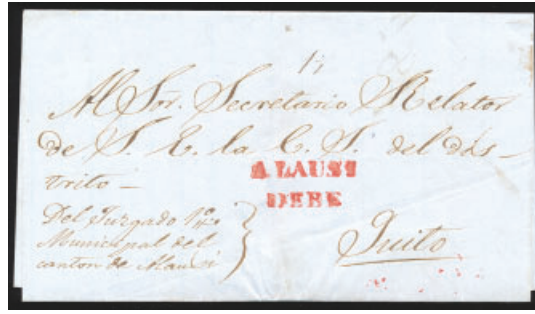 Al Sor. Secretario Relator
de S. E. la C. S. del dis-
trito -
ALAUSI
DEBE
Del Juzgado 1º
Municipal del
canton de Alausi
Quito